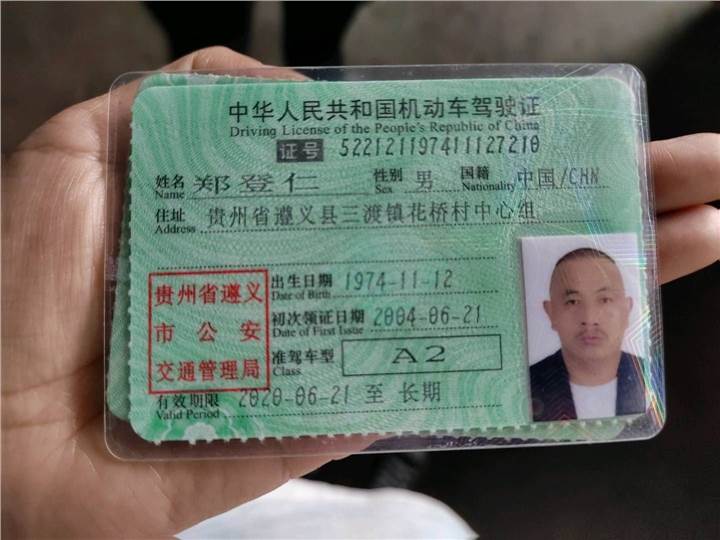 中华人民共和国机动车驾驶证
Driving License of the People's Republic of China
证号 522121197411127210
姓名 郑登仁 性别 男 国籍 中国/CHN
Name Sex Nationality
住址 贵州省遵义县三渡镇花桥村中心组
Address
贵州省遵义
市公安
交通管理局
出生日期 1974-11-12
Date of Birth
初次领证日期 2004-06-21
Date of First Issue
准驾车型 A2
Class
有效期限 2020-06-21 至 长期
Valid Period